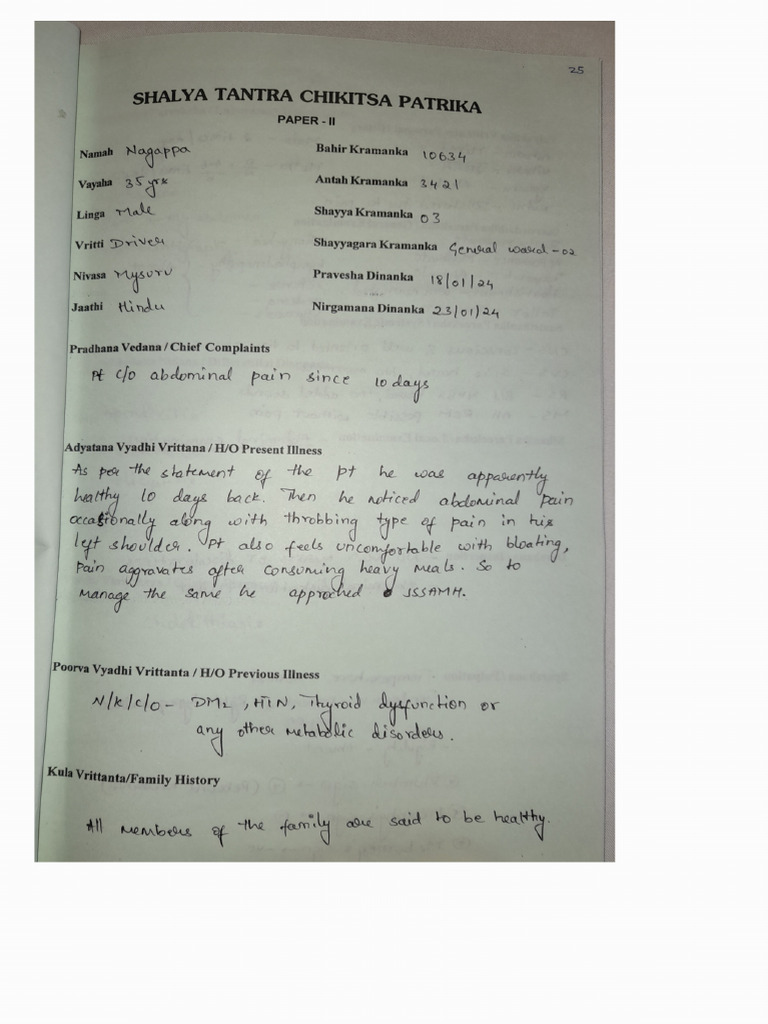 25
SHALYA TANTRA CHIKITSA PATRIKA
PAPER - II
Namah Nagappa Bahir Kramanka 10634
Vayaha 35 yrs Antah Kramanka 3421
Linga Male Shayya Kramanka 03
Vritti Driver Shayyagara Kramanka General ward-02
Nivasa Mysuru Pravesha Dinanka 18/01/24
Jaathi Hindu Nirgamana Dinanka 23/01/24
Pradhana Vedana / Chief Complaints
Pt c/o abdominal pain since 10 days
Adyatana Vyadhi Vrittana / H/O Present Illness
As per the statement of the pt he was apparently
healthy 10 days back. Then he noticed abdominal pain
occasionally along with throbbing type of pain in his
left shoulder. Pt also feels uncomfortable with bloating,
Pain aggravates after consuming heavy meals. So to
manage the same he approched JSSAMH.
Poorva Vyadhi Vrittanta / H/O Previous Illness
N/K/C/O - DM2, HTN, Thyroid dysfunction or
any other metabolic disorders.
Kula Vrittanta/Family History
All members of the family are said to be healthy.